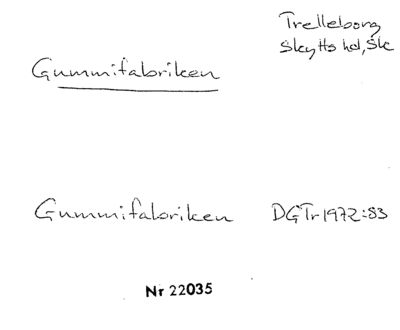 Trelleborg
Skytts hd, Sk
Gummifabriken
Gummifabriken DGTr 1972:83
Nr 22035